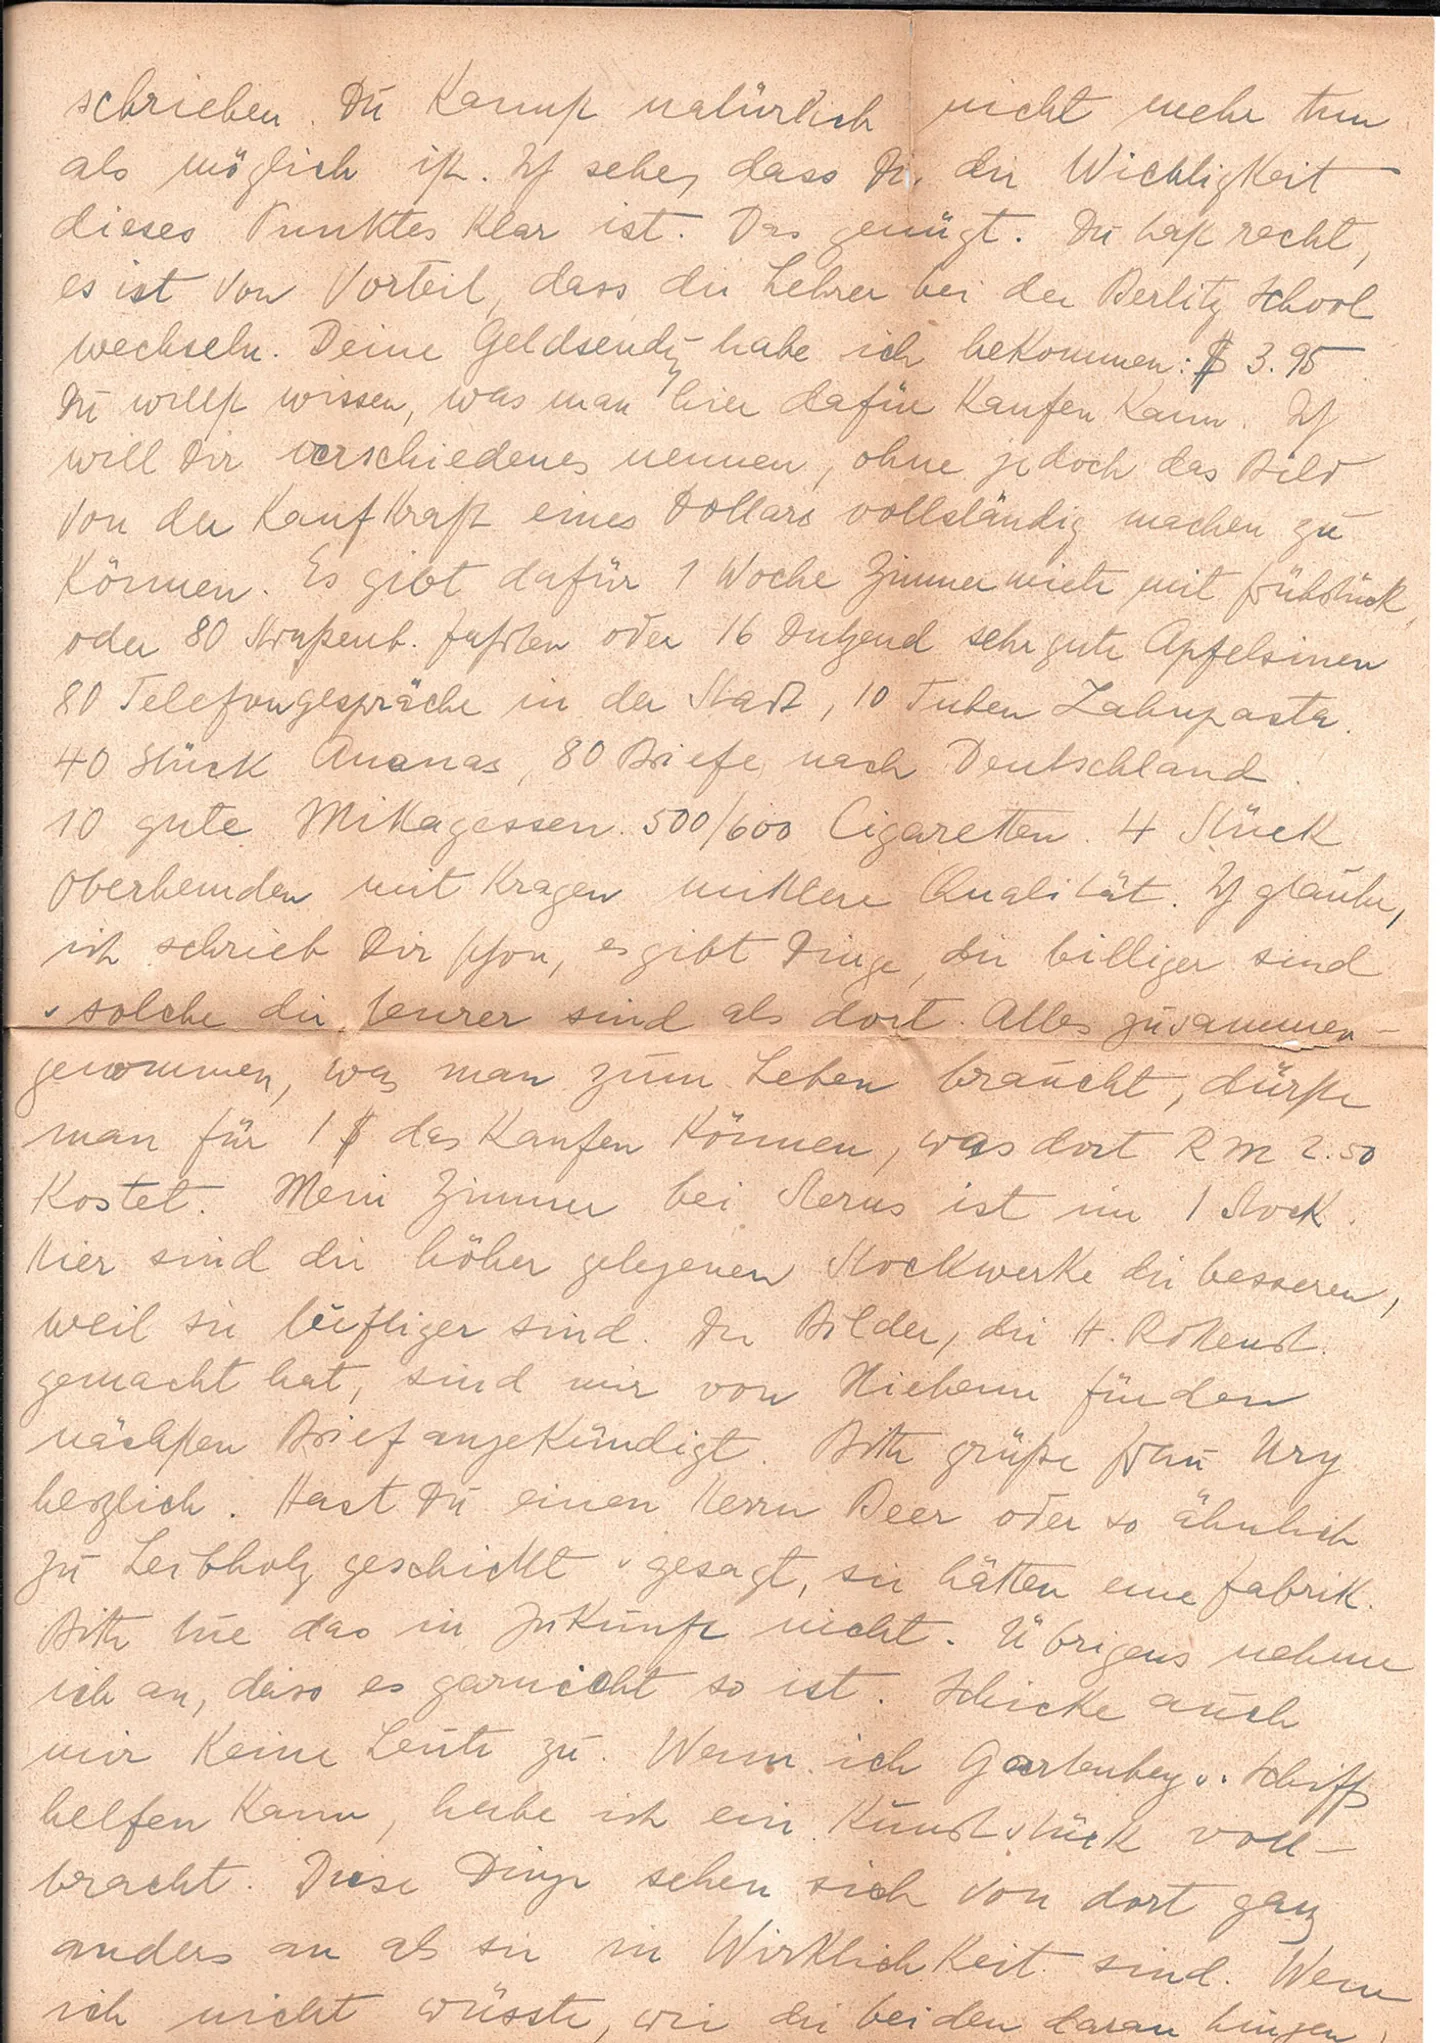 schrieben. Du kannst natürlich nicht mehr tun
als möglich ist. Ich sehe, dass Dir die Wichtigkeit
dieses Punktes klar ist. Das genügt. Du hast recht,
es ist von Vorteil, dass die Lehrer bei der Berlitz School
wechseln. Deine Geldsendg habe ich bekommen: $ 3.95
Du willst wissen, was man hier dafür kaufen kann. Ich
will Dir verschiedenes nennen, ohne jedoch das Bild
von der Kaufkraft eines Dollars vollständig machen zu
können. Es gibt dafür 1 Woche Zimmermiete mit Frühstück,
oder 80 Straßenb. fahrten oder 16 Dutzend sehr gute Apfelsinen
80 Telefongespräche in der Stadt, 10 Tuben Zahnpasta.
40 Stück Ananas, 80 Briefe nach Deutschland.
10 gute Mittagessen. 500/600 Cigaretten. 4 Stück
Oberhemden mit Kragen mittlere Qualität. Ich glaube,
ich schrieb Dir schon, es gibt Dinge, die billiger sind
u solche die teurer sind als dort. Alles zusammen-
genommen, was man zum Leben braucht, dürfte
man für 1 $ das kaufen können, was dort RM 2.50
kostet. Mein Zimmer bei Sterns ist im 1 Stock.
Hier sind die höher gelegenen Stockwerke die besseren,
weil sie luftiger sind. Die Bilder, die H. Rottenst.
gemacht hat, sind mir von für den
nächsten Brief angekündigt. Bitte grüße Frau Ury
herzlich. Hast Du einen Herrn Beer oder so ähnlich
zu Leibholz geschickt u gesagt, sie hätten eine Fabrik.
Bitte tue das in Zukunft nicht. Übrigens nehme
ich an, dass es garnicht so ist. Schicke auch
mir keine Leute zu. Wenn ich Gartenberg u. Schiff
helfen kann, habe ich ein Kunststück voll-
bracht. Diese Dinge sehen sich von dort ganz
anders an als sie in Wirklichkeit sind. Wenn
ich nicht wüsste, wie die beiden daran hingen